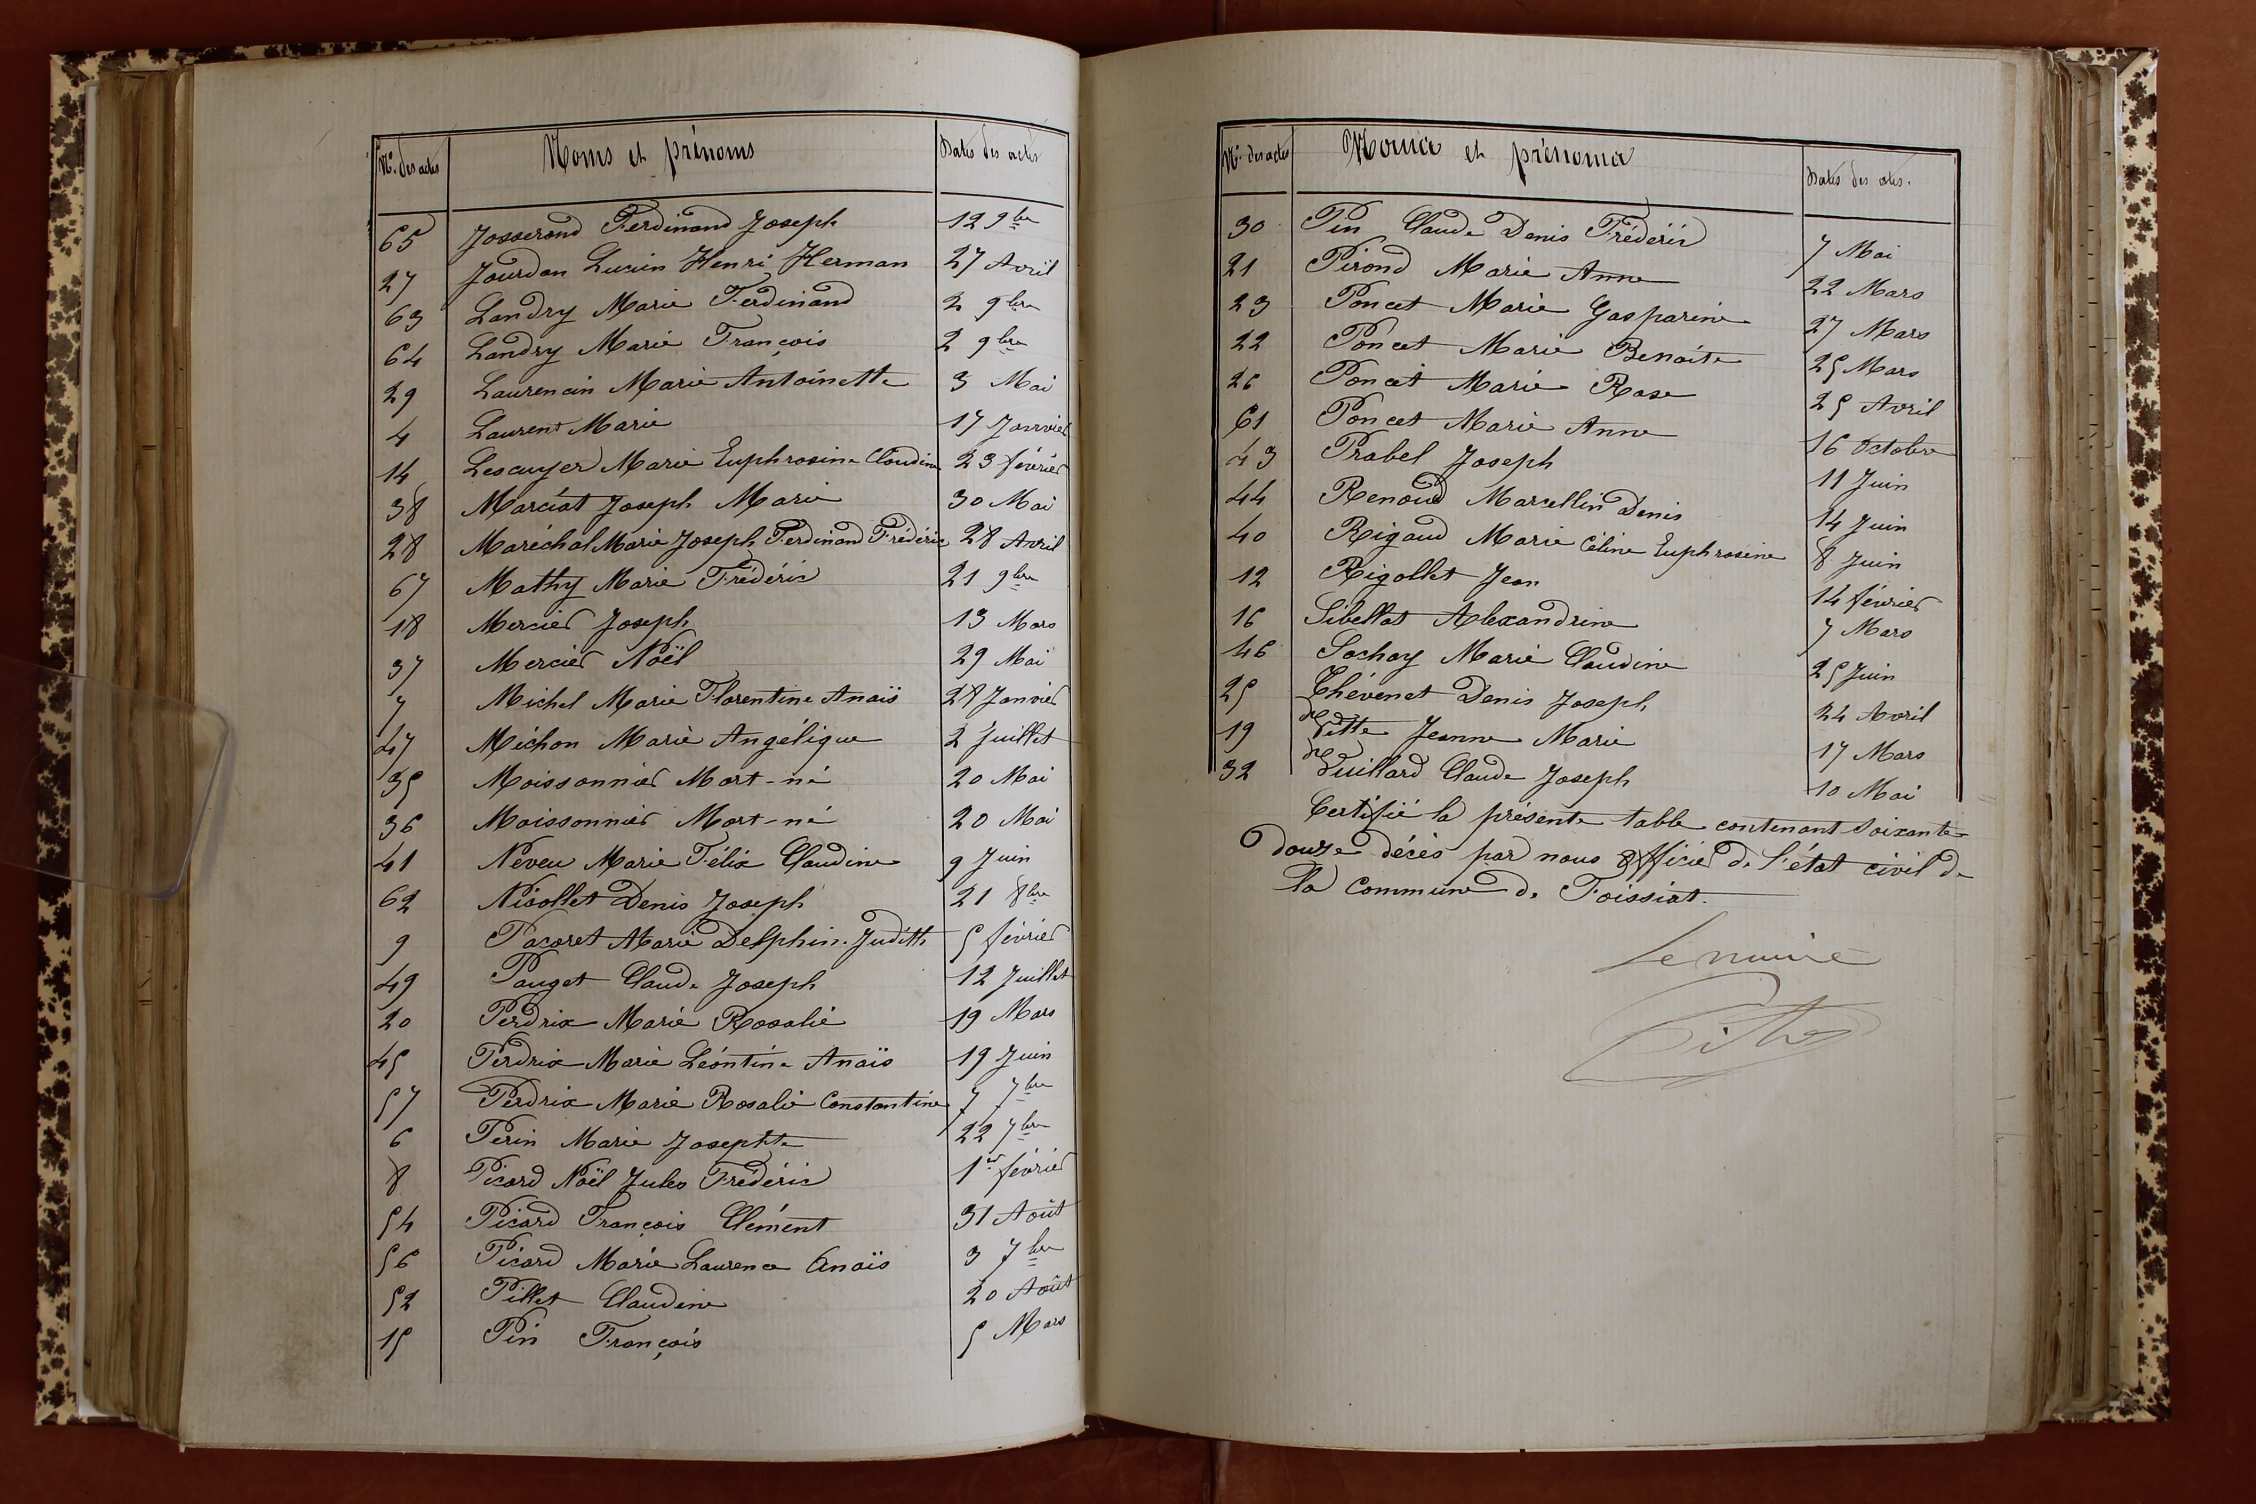 Nos des actes Noms et prénoms Dates des actes
65 Josserand Ferdinand Joseph 12 9bre
27 Jourdan Lucien Henri Herman 27 Avril
63 Landry Marie Ferdinand 2 9bre
64 Landry Marie François 2 9bre
29 Laurencin Marie Antoinette 3 Mai
4 Laurent Marie 17 Janvier
14 Lescuyer Marie Euphrosine Claudine 23 février
38 Marciat Joseph Marie 30 Mai
28 Maréchal Marie Joseph Ferdinand Frédéric 28 Avril
67 Mathy Marie Frédéric 21 9bre
18 Mercier Joseph 13 Mars
37 Mercier Noël 29 Mai
7 Michel Marie Florentine Anaïs 28 Janvier
47 Michon Marie Angélique 2 Juillet
35 Moissonnier Mort-né 20 Mai
36 Moissonnier Mort-né 20 Mai
41 Neveu Marie Félix Claudine 9 Juin
62 Nicollet Denis Joseph 21 8bre
9 Pacoret Marie Delphine Judith 5 février
49 Pauget Claude Joseph 12 Juillet
20 Perdrix Marie Rosalie 19 Mars
45 Perdrix Marie Léontine Anaïs 19 Juin
57 Perdrix Marie Rosalie Constantine 7 7bre
6 Perin Marie Josephte 22 7bre
8 Picard Noël Jules Frédéric 1er février
54 Picard François Clément 31 Août
56 Picard Marie Laurence Anaïs 3 7bre
52 Pillet Claudine 20 Août
15 Pin François 5 Mars
Nos des actes Noms et prénoms Dates des actes.
30 Pin Claude Denis Frédéric 7 Mai
21 Pirond Marie Anne 22 Mars
23 Poncet Marie Gasparine 27 Mars
22 Poncet Marie Benoite 25 Mars
26 Poncet Marie Rose 25 Avril
61 Poncet Marie Anne 16 Octobre
43 Prabel Joseph 11 Juin
44 Renoud Marcellin Denis 14 Juin
40 Rigaud Marie Céline Euphrosine 8 Juin
12 Rigollet Jean 14 février
16 Sibellas Alexandrine 7 Mars
46 Sochay Marie Claudine 25 Juin
25 Thévenet Denis Joseph 24 Avril
19 Vitte Jeanne Marie 17 Mars
32 Vuillard Claude Joseph 10 Mai
Certifié la présente table contenant Soixante
douze décès par nous Officier de l'état civil de
la Commune de Foissiat.
Le maire